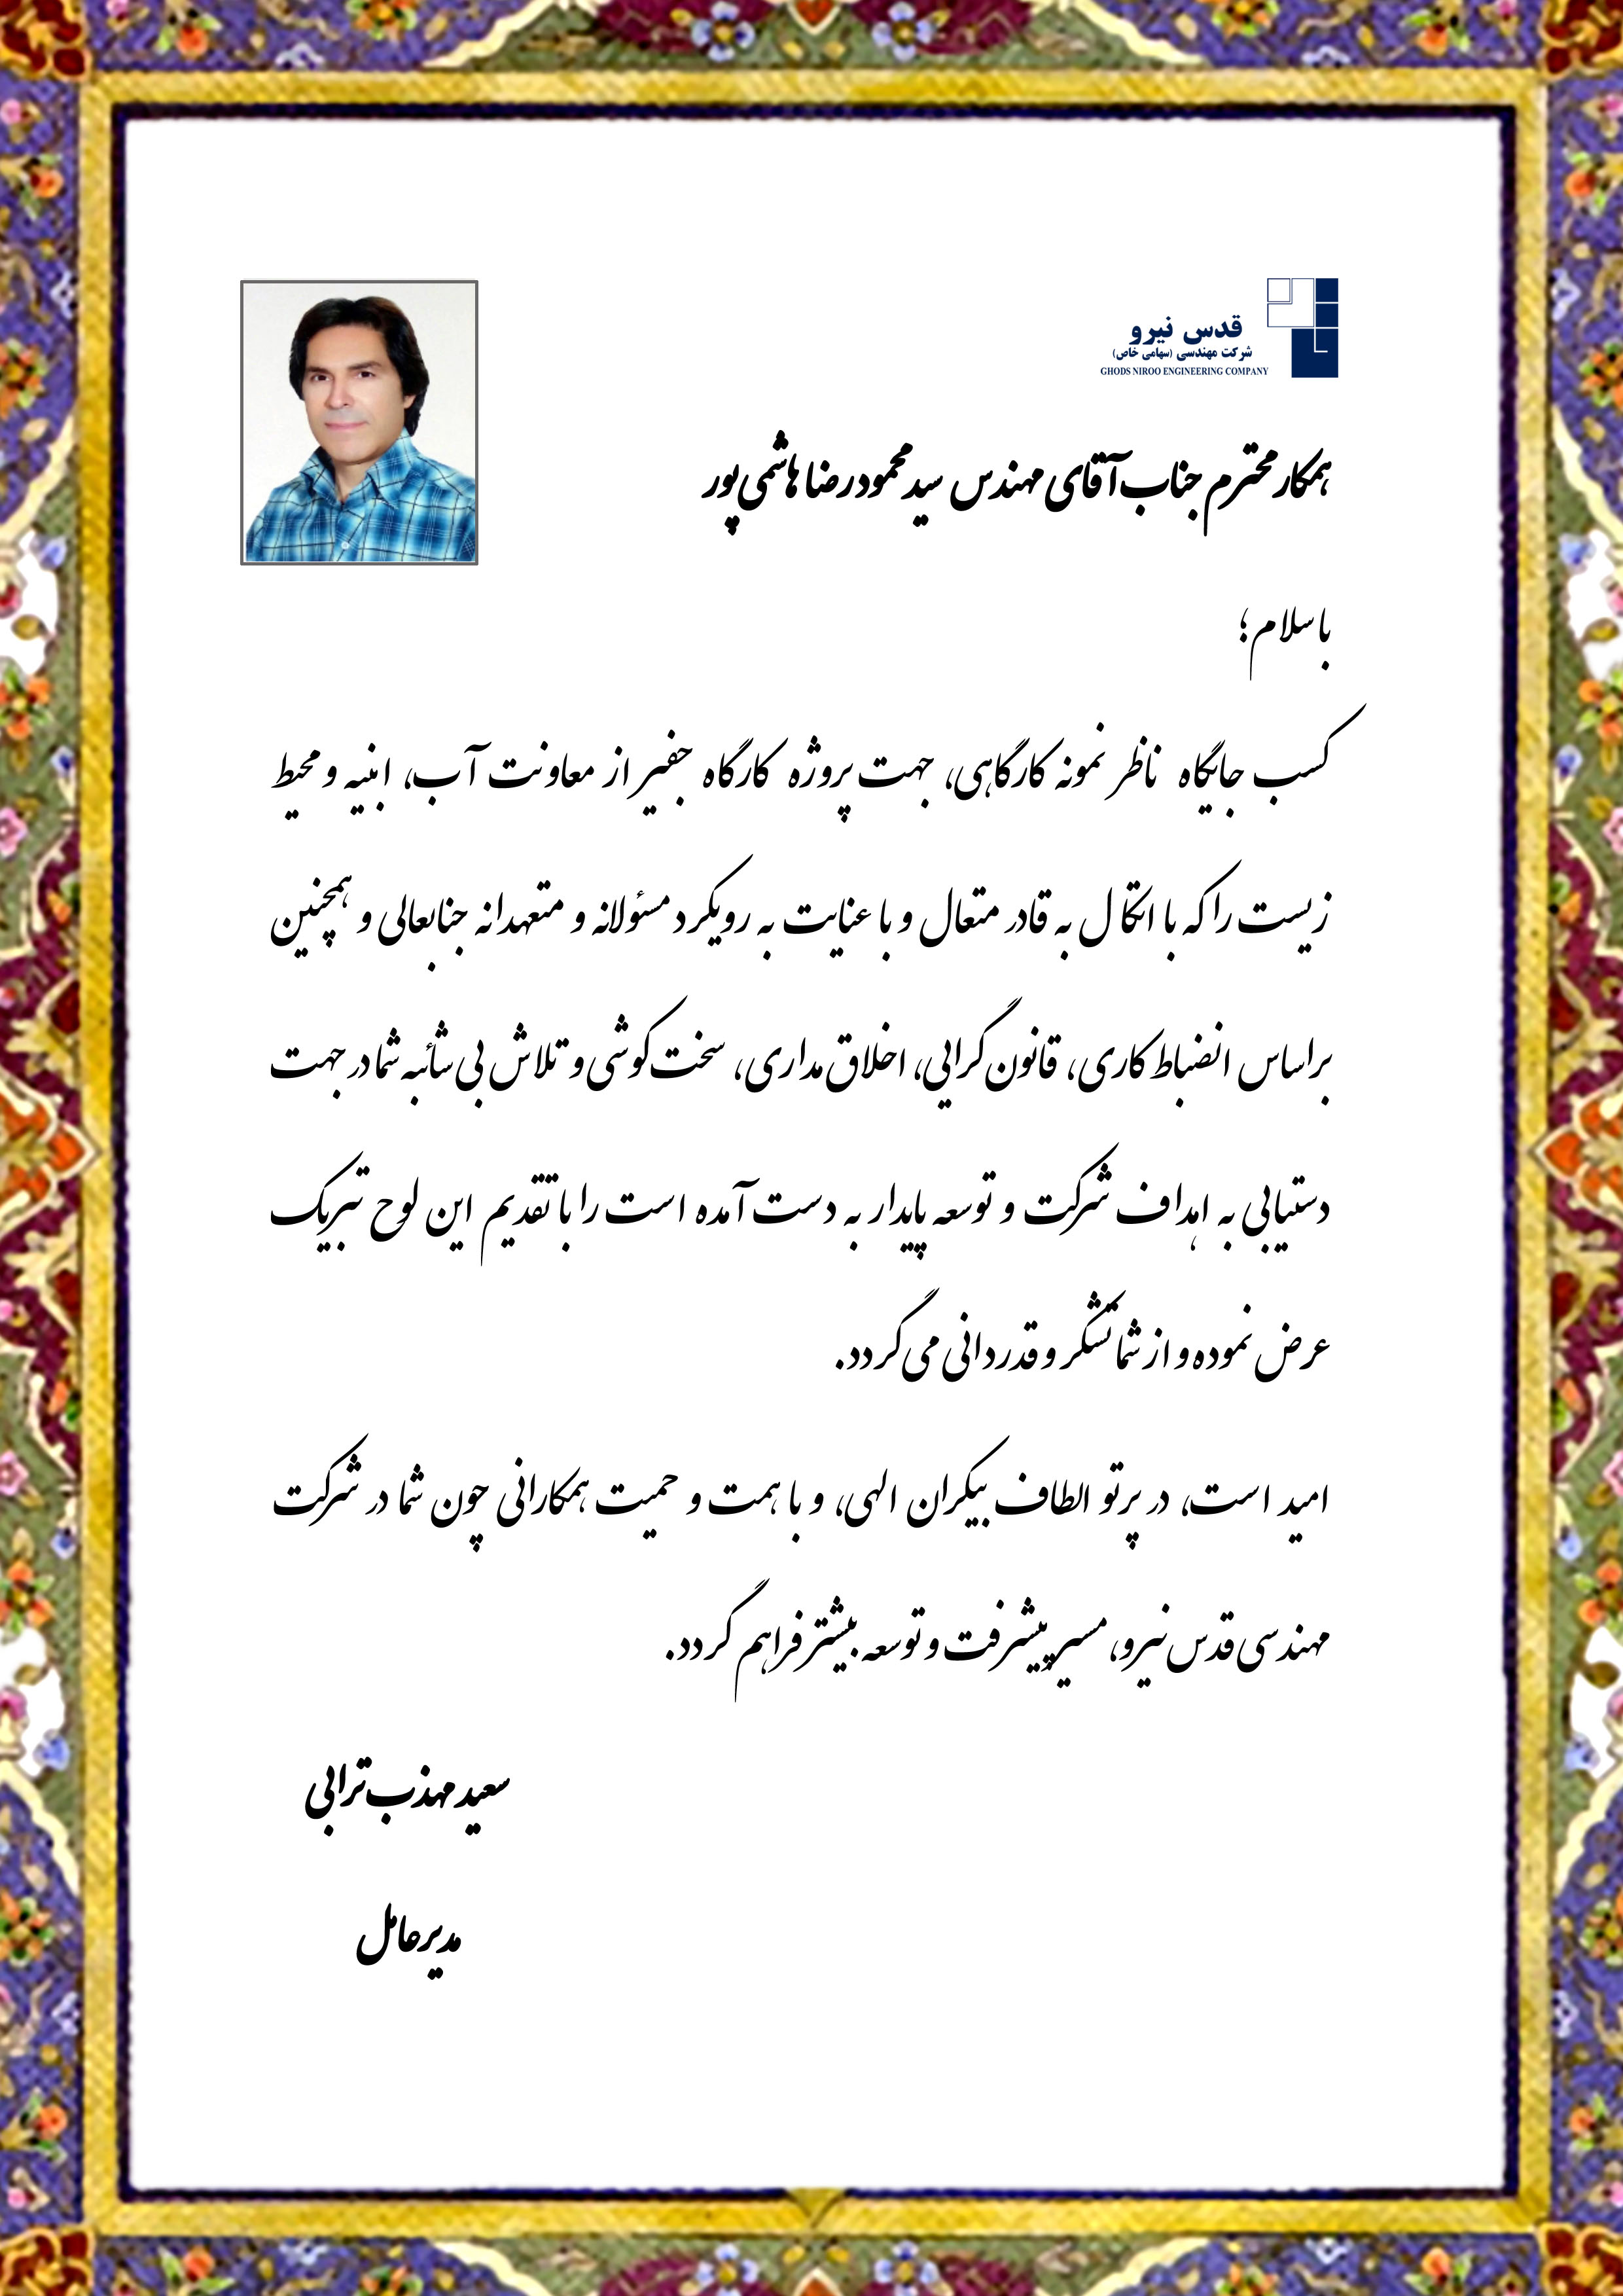 قدس نیرو
شرکت مهندسی (سهامی خاص)
GHODS NIROO ENGINEERING COMPANY
همکار محترم جناب آقای مهندس سید محمودرضا هاشمی پور
با سلام؛
کسب جایگاه ناظر نمونه کارگاهی، جهت پروژه کارگاه جفیر از معاونت آب، ابنیه و محیط
زیست را که با اتکال به قادر متعال و با عنایت به رویکرد مسئولانه و متعهدانه جنابعالی و همچنین
براساس انضباط کاری، قانون گرایی، اخلاق مداری، سخت کوشی و تلاش بی شائبه شما در جهت
دستیابی به اهداف شرکت و توسعه پایدار به دست آمده است را با تقدیم این لوح تبریک
عرض نموده و از شما تشکر و قدردانی می گردد.
امید است، در پرتو الطاف بیکران الهی، و با همت و حمیت همکارانی چون شما در شرکت
مهندسی قدس نیرو، مسیر پیشرفت و توسعه بیشتر فراهم گردد.
سعید مهذب ترابی
مدیرعامل